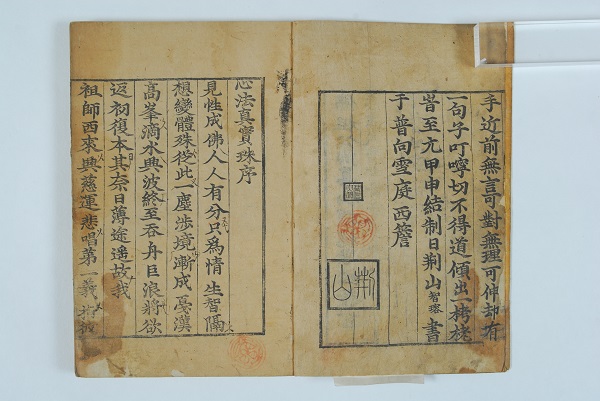 手近前無言可對無理可伸却有
一句子叮嚀切不得道傾出一栲栳
皆至元甲申結制日荆山智珞書
于普向雪庭西簷
荆山
心法真實珠序
見性成佛人人有分只爲情生智隔
想變體殊從此一塵涉境漸成憂漢
高峯滴水與波終至吞舟巨浪將欲
返初復本其奈日薄途遥故我
祖師西來興慈運悲唱第一義